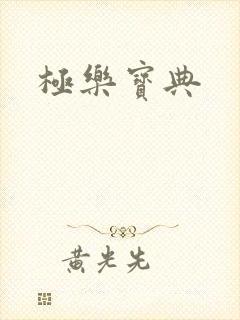 極樂寶典
黃光先